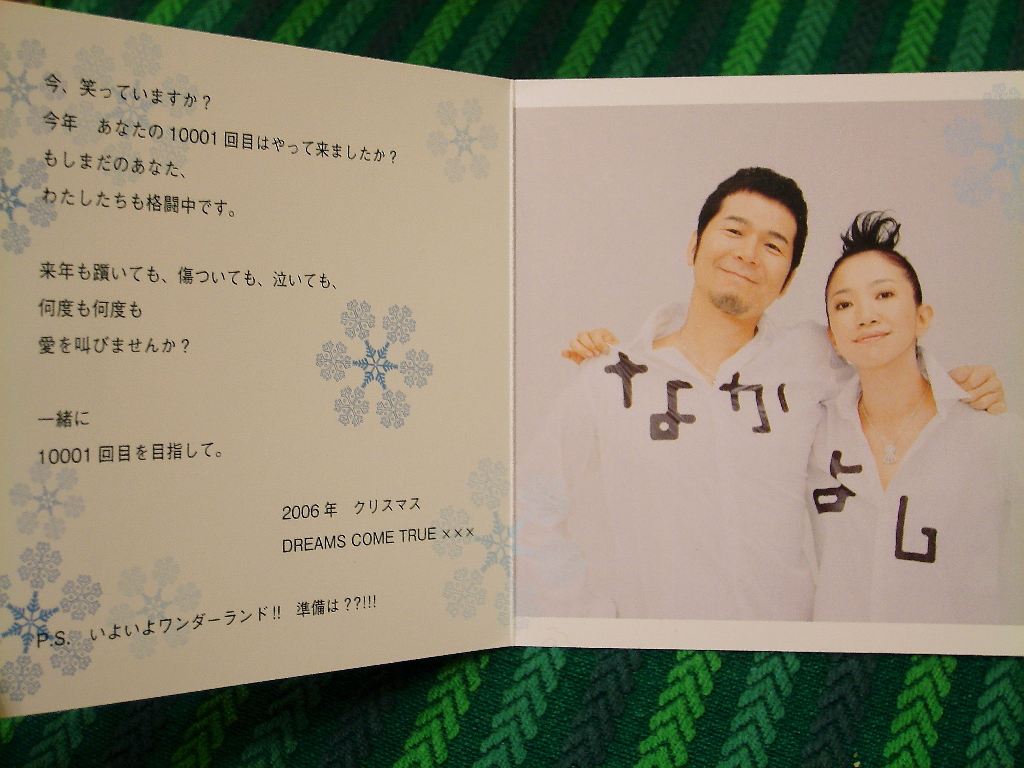 今、笑っていますか？
今年　あなたの10001回目はやって来ましたか？
もしまだのあなた、
わたしたちも格闘中です。
来年も躓いても、傷ついても、泣いても、
何度も何度も
愛を叫びませんか？
一緒に
10001回目を目指して。
2006年　クリスマス
DREAMS COME TRUE ×××
P.S.　いよいよワンダーランド!!　準備は??!!!
なか
よし